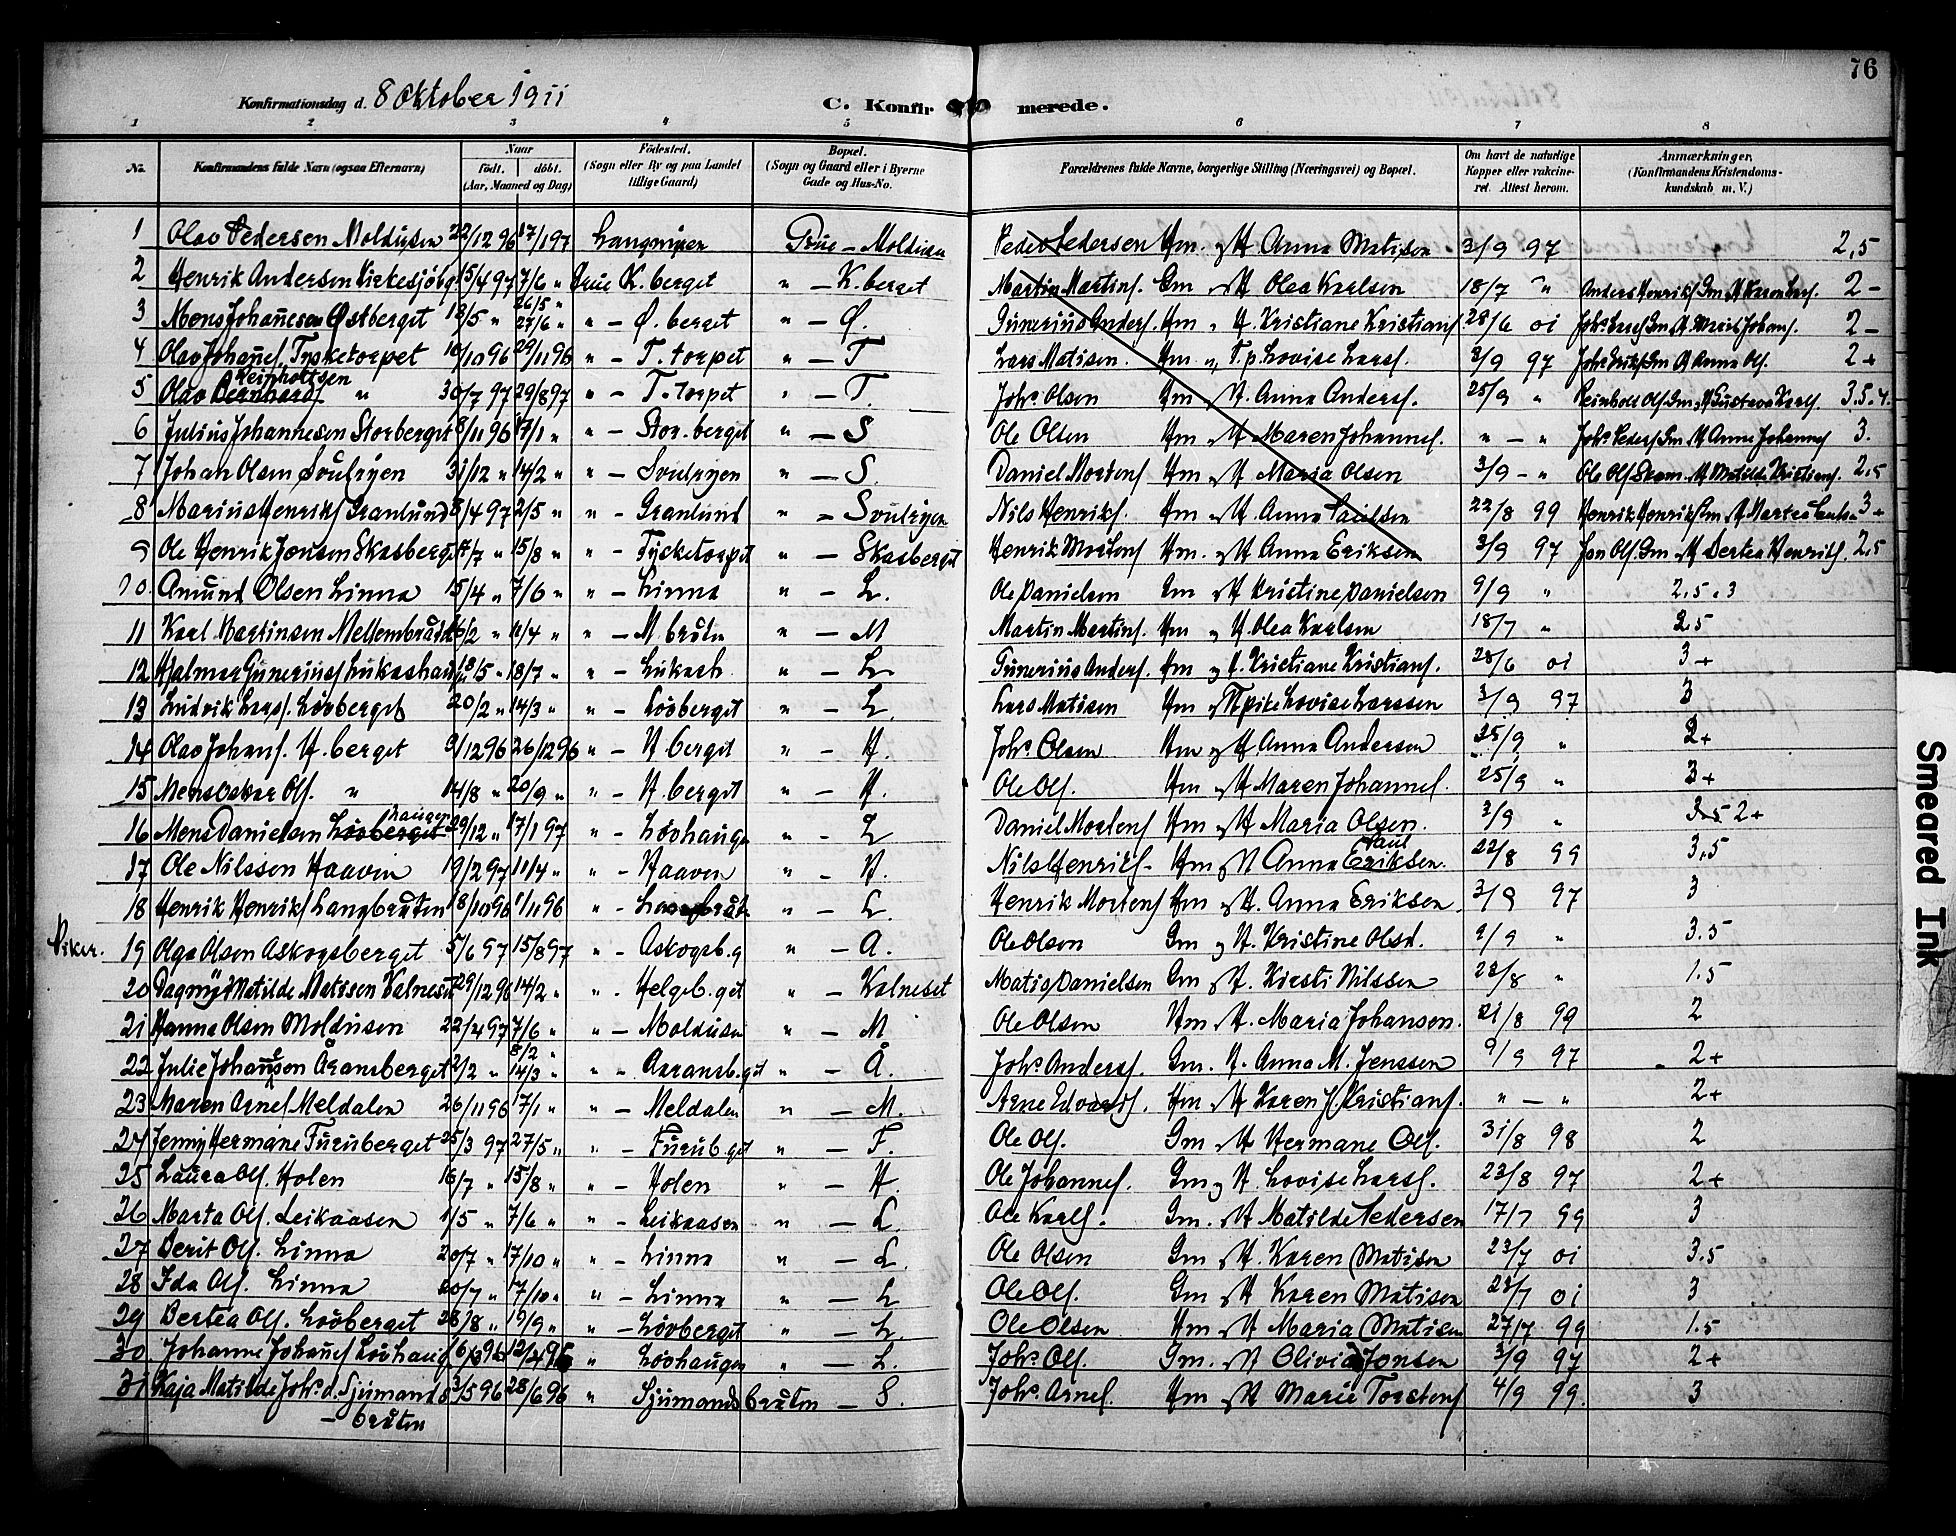 76
Konfirmationsdag d. 8 Oktober 1911 C. Konfirmerede.
1 2 3 4 5 6 7 8
No. Konfirmandens fulde Navn (ogsaa Efternavn) Naar født. døbt. (Aar, Maaned og Dag) Fødested. (Sogn eller By og paa Landet tillige Gaard) Bopæl. (Sogn og Gaard eller i Byerne Gade og Hus-No. Forældrenes fulde Navne, borgerlige Stilling (Næringsvei) og Bopæl. Om havt de naturlige Kopper eller vakcineret. Attest herom. Anmærkninger. (Konfirmandens Kristendomskundskab m. V.)
1 Olav Pedersen Moldusen 22/12 96 17/1 97 Langrujen Grue – Moldusen Peder Pedersen Hm. og H. Anna Matisen 3/9 97 2,5
2 Henrik Andersen Kirkesjøbg 15/4 97 7/6 " Grue K. berget " – K. berget Martin Martins. Gm og H Olea Karlsen 18/7 " Anders Henriks Gm H Karen Lars. 2 –
3 Mons Johannesen Østberget 18/5 " 26/5 " 27/6 " " – Ø. berget " – Ø. Gunerius Anders. Hm " H. Kristiane Kristians 28/6 01 Johs Lars Gm H. Maris Johans. 2 –
4 Olav Johannes. Tysketorpet 10/10 96 29/11 96 " – T. torpet " – T Lars Matisen. Hm " T.p. Lovise Lars. 3/9 97 Johs Eriks Gm H Anna Ols. 2+
5 Olav Bernhard Reinholttsen " 30/7 97 29/8 97 " – T. torpet " – T. Johs Olsen Hm og H. Anna Anders. 25/9 " Reinholt Ols. Gm. H Gustava Karls. 3.5.4.
6 Julius Johannesen Storberget 8/11 96 17/1 " " – Stor. berget " – S Ole Olsen Hm og H Maren Johannes. " – " Johs Peders Gm H Anne Johannes 3.
7 Johan Olsen Svulryen 31/12 " 14/2 " " – Svulryen " – S. Daniel Mortens Hm og H Maria Olsen 3/9 – " Ole Ols. Skom. H Matilde Kristians. 2,5
8 Marius Henriks Granlund 8/4 97 2/5 " " – Granlund " – Svulryen Nils Henriks. Hm og H. Anna Paulsen 22/8 99 Henrik Henriks Gm H Martea 3+
9 Ole Henrik Jonsen Skasberget 4/7 " 15/8 " " – Tysketorpet " – Skasberget Henrik Mortens Hm. og H Anna Eriksen 3/9 97 Jon Ols. Gm H Bertea Henriks. 2,5
10 Amund Olsen Linna 15/4 " 7/6 " " – Linna " – L. Ole Danielsen Gm og H Kristine Danielsen 9/9 " 2.5.3
11 Karl Martinsen Mellembråten /2 " 11/4 " " – M. bruten " – M Martin Martins. Hm og H. Olea Karlsen 18/7 " 2.5
12 Hjalmar Gunerius Lukashaug 18/5 " 18/7 " " – Lukash. " – L Gunerius Anders. Hm og H. Kristiane Kristians. 28/6 01 3+
13 Ludvik Lars. Lövberget 20/2 " 14/3 " " – Lövberget " – L. Lars Matisen Hm og T.pike Lovise Larssen 3/9 97 3
14 Olav Johans. H. berget 9/12 96 26/12 96 " – H berget " – H. Johs Olsen Hm og H Anna Andersen 25/9 " 2+
15 Mens Oskar Ols. " 14/8 " 20/9 " " – H. berget " – H. Ole Ols. Hm og H Maren Johannes. 25/9 " 3+
16 Mons Danielsen Lövberget haugen 29/12 " 17/1 97 " – Lövhaugen " – L Daniel Mortens Hm og H Maria Olsen. 3/9 " 3.5 2+
17 Ole Nilssen Haaven 19/2 97 11/4 " " – Haaven " – H. Nils Henriks – Hm og H Anna Eriksen. Paul 22/8 99 3.5
18 Henrik Henriks Langbruten 18/10 96 1/11 96 " – Langbrut. " – L. Henrik Mortens Hm og H. Anna Eriksen. 3/9 97 3
Piker. 19 Olga Olsen Askogsberget 5/6 97 15/8 97 " – Askogsb.g " – A. Ole Olsen Gm og H. Kristine Olsd. 9/9 " 3.5
20 Dagny Matilde Matissen Kalneset 29/12 96 14/2 " " – Helgeb.get " – Kalneset Matis Danielsen Gm og H. Kirsti Nilssen 22/8 " 1.5
21 Hanna Olsen Moldusen 22/4 97 7/6 " " – Moldusen " – M Ole Olsen Hm og H. Maria Johansen. 21/8 99 2
22 Julie Johansen Åransberget 2/2 " 8/2 " 14/3 " " – Aaransb.get " – Å. Johs Anders. Gm. H. Anna M. Jenssen 9/9 97 2+
23 Maren Arnes. Meldalen 26/11 96 17/1 " " – Meldalen " – M. Arne Edvards. Hm og H Karen Kristians. " – " 2+
24 Jenny Hermane Furuberget 25/3 97 27/5 " " – Furub.get " – F. Ole Ols. Gm og H Hermane Ols. 31/8 98 2
25 Laura Ols. Holen 16/7 " 15/8 " " – Holen " – H. Ole Johannes. Gm og H. Lovise Lars. 23/8 97 2+
26 Marta Ols. Leikaasen 1/5 " 7/6 " " – Leikaasen " – L. Ole Karls. Gm. og H Matilde Pedersen 17/7 99 3
27 Berit Ols. Linna 20/7 " 17/10 " " – Linna " – L. Ole Olsen Gm og H. Karen Matisen 23/7 01 3.5
28 Ida Ols. Linna 20/7 " 17/10 " " – Linna " – L Ole Ols. Gm og H Karen Matisen 23/7 01 3
29 Bertea Ols. Lövberget 28/8 " 19/9 " " – Lövberget " – L. Ole Olsen Hm og H Maria Matisen 27/7 99 1.5
30 Johanne Johannes Lövhaug 16/3 96 12/4 96 " Lövhaugen " – L. Johs Ols. Gm. og H Olivia Jonsen 3/9 97 2+
31 Kaja Matilde Johs. d. Sjumandsbruten 3/5 96 28/6 96 " Sjumandsbruten – S. Johs Arnes. Hm og H Marie Torstens 4/9 99. 3
Smeared Ink